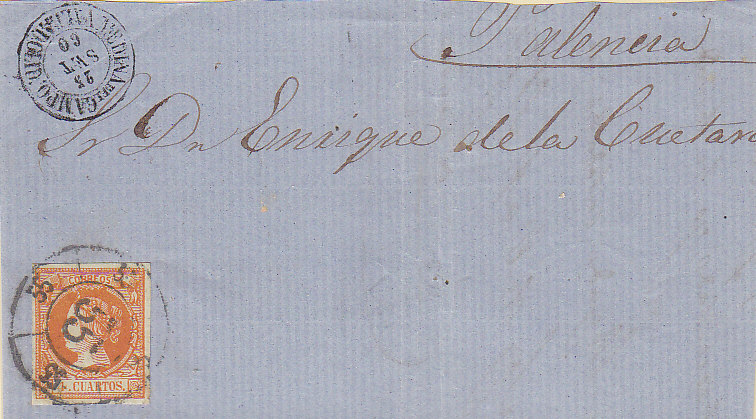 Palencia
Sr Dn Enrique de la Cuetara
MEDINA DEL CAMPO. VALLADOLID
23
60
CORREOS
55
4 CUARTOS.